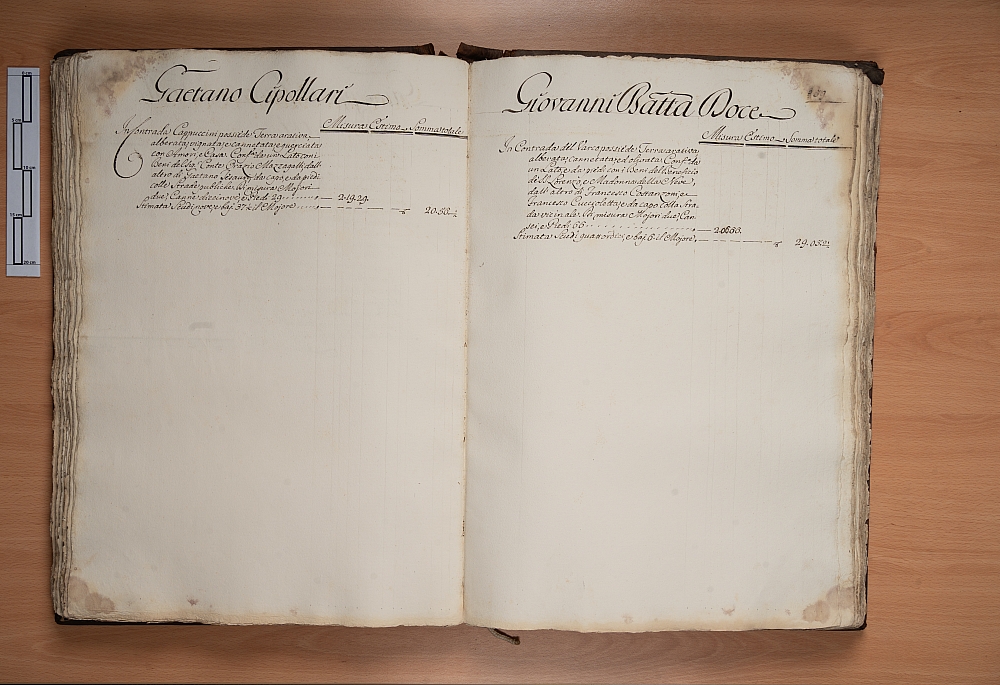 Gaetano Cipollari
Misura Estimo Somma totale
In Contrada Cappuccini possiede Terra arativa
alberata, vignata, e cannetata, e querciata
con Mori, e Casa Conf.ta da un Lato coni
Beni del Sig. Conte Orazio Mozzagalli, dall'
altro di Gaetano da capo, e da piedi
colle Strade publiche, di misura Mojori
due, Canne diecinove, e Piedi 29 2.19.29
Stimata Scudi nove, e baj. 37½ il Mojore 20.53
Giovanni Batta Doce
Misura Estimo Somma totale
In Contrada del Parco possiede Terra arativa
alberata, cannetata, ed olivata, Conf.ta da
un Lato, e da piedi con i Beni del Beneficio
di S. Lorenzo, e Madonna della Neve,
dall'altro di Francesco Costanzoni, e
Francesco Cucciolotta, e da capo colla Stra-
da vicinale, di misura Mojori due, Can-
ne sei, e Piedi 66
Stimata Scudi quattordici, e baj. 6 il Mojore 29.03